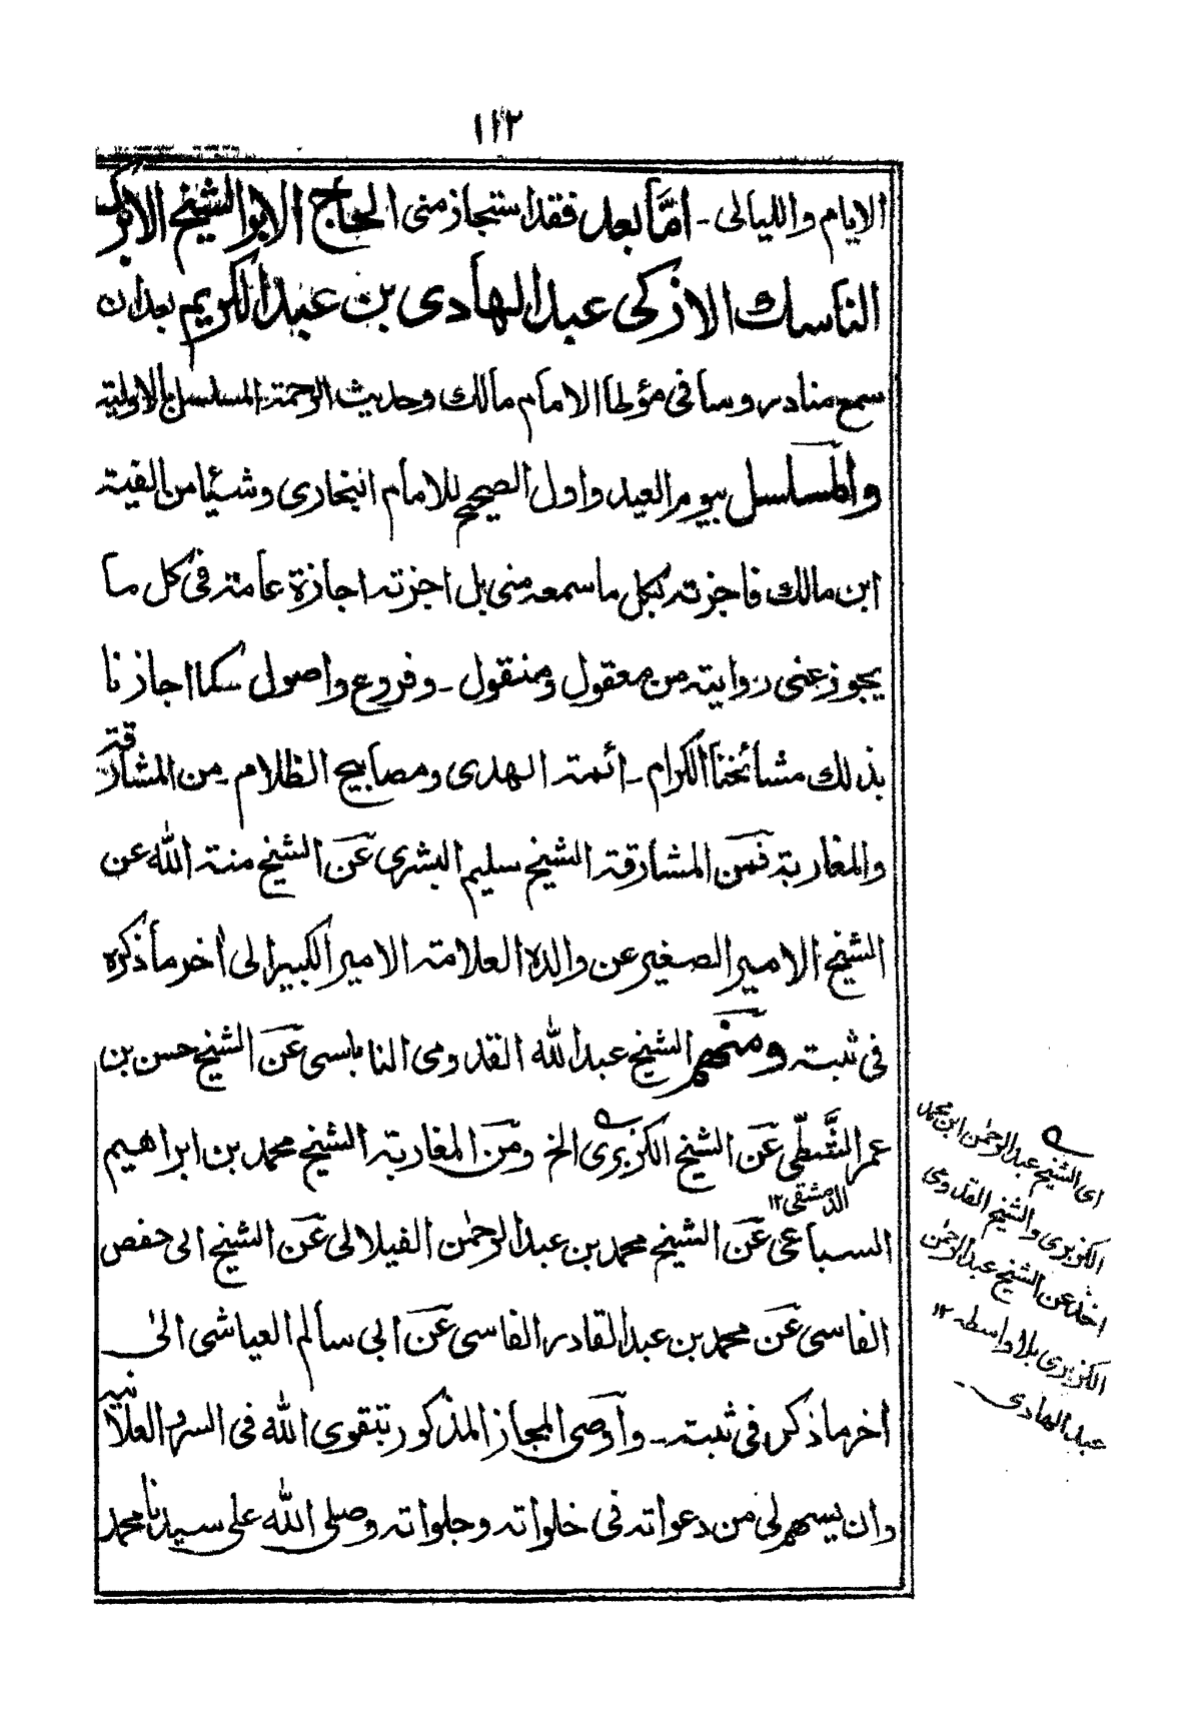 ١١٢
الايام والليالى ۔ امّا بعد فقد استجاز منى الحاج الابوا الشيخ الابرك
الناسك الازكى عبد الهادى بن عبد الكريم بعد ان
سمع منا دروسا فى مؤطا الامام مالك وحديث الرحمة المسلسل بالاولية
والمسلسل بيوم العيد واول الصحيح للامام البخارى وشيئا من الفية
ابن مالك فاجزته بكل ما سمعه منى بل اجزته اجازة عامة فى كل ما
يجوز عنى روايته من معقول ومنقول ۔ وفروع واصول كما اجازنا
بذلك مشائخنا الكرام ۔ ائمة الهدى ومصابيح الظلام ۔ من المشارقة
والمغاربة فمن المشارقة الشيخ سليم البشرى عن الشيخ منة الله عن
الشيخ الامير الصغير عن والده العلامة الامير الكبير الى اخر ما ذكره
فى ثبته ومنهم الشيخ عبد الله القدومى النابلسى عن الشيخ حسن بن
عمر الشَّطّى عن الشيخ الكزبرى الخ ومن المغاربة الشيخ محمد بن ابراهيم
الدمشقى ١٢
السباعى عن الشيخ محمد بن عبد الرحمٰن الفيلالى عن الشيخ ابى حفص
الفاسى عن محمد بن عبد القادر الفاسى عن ابى سالم العياشى الىٰ
اخر ما ذكره فى ثبته ۔ واوصى المجاز المذكور بتقوى الله فى السر والعلانية
وان يسهم لى من دعواته فى خلواته وجلواته وصلى الله على سيدنا محمد
اى الشيخ عبد الرحمٰن ابن محمد
الكزبرى والشيخ القدومى
اخذ عن الشيخ عبد الرحمٰن
الكزبرى بلا واسطه ١٢
عبد الهادى ۔